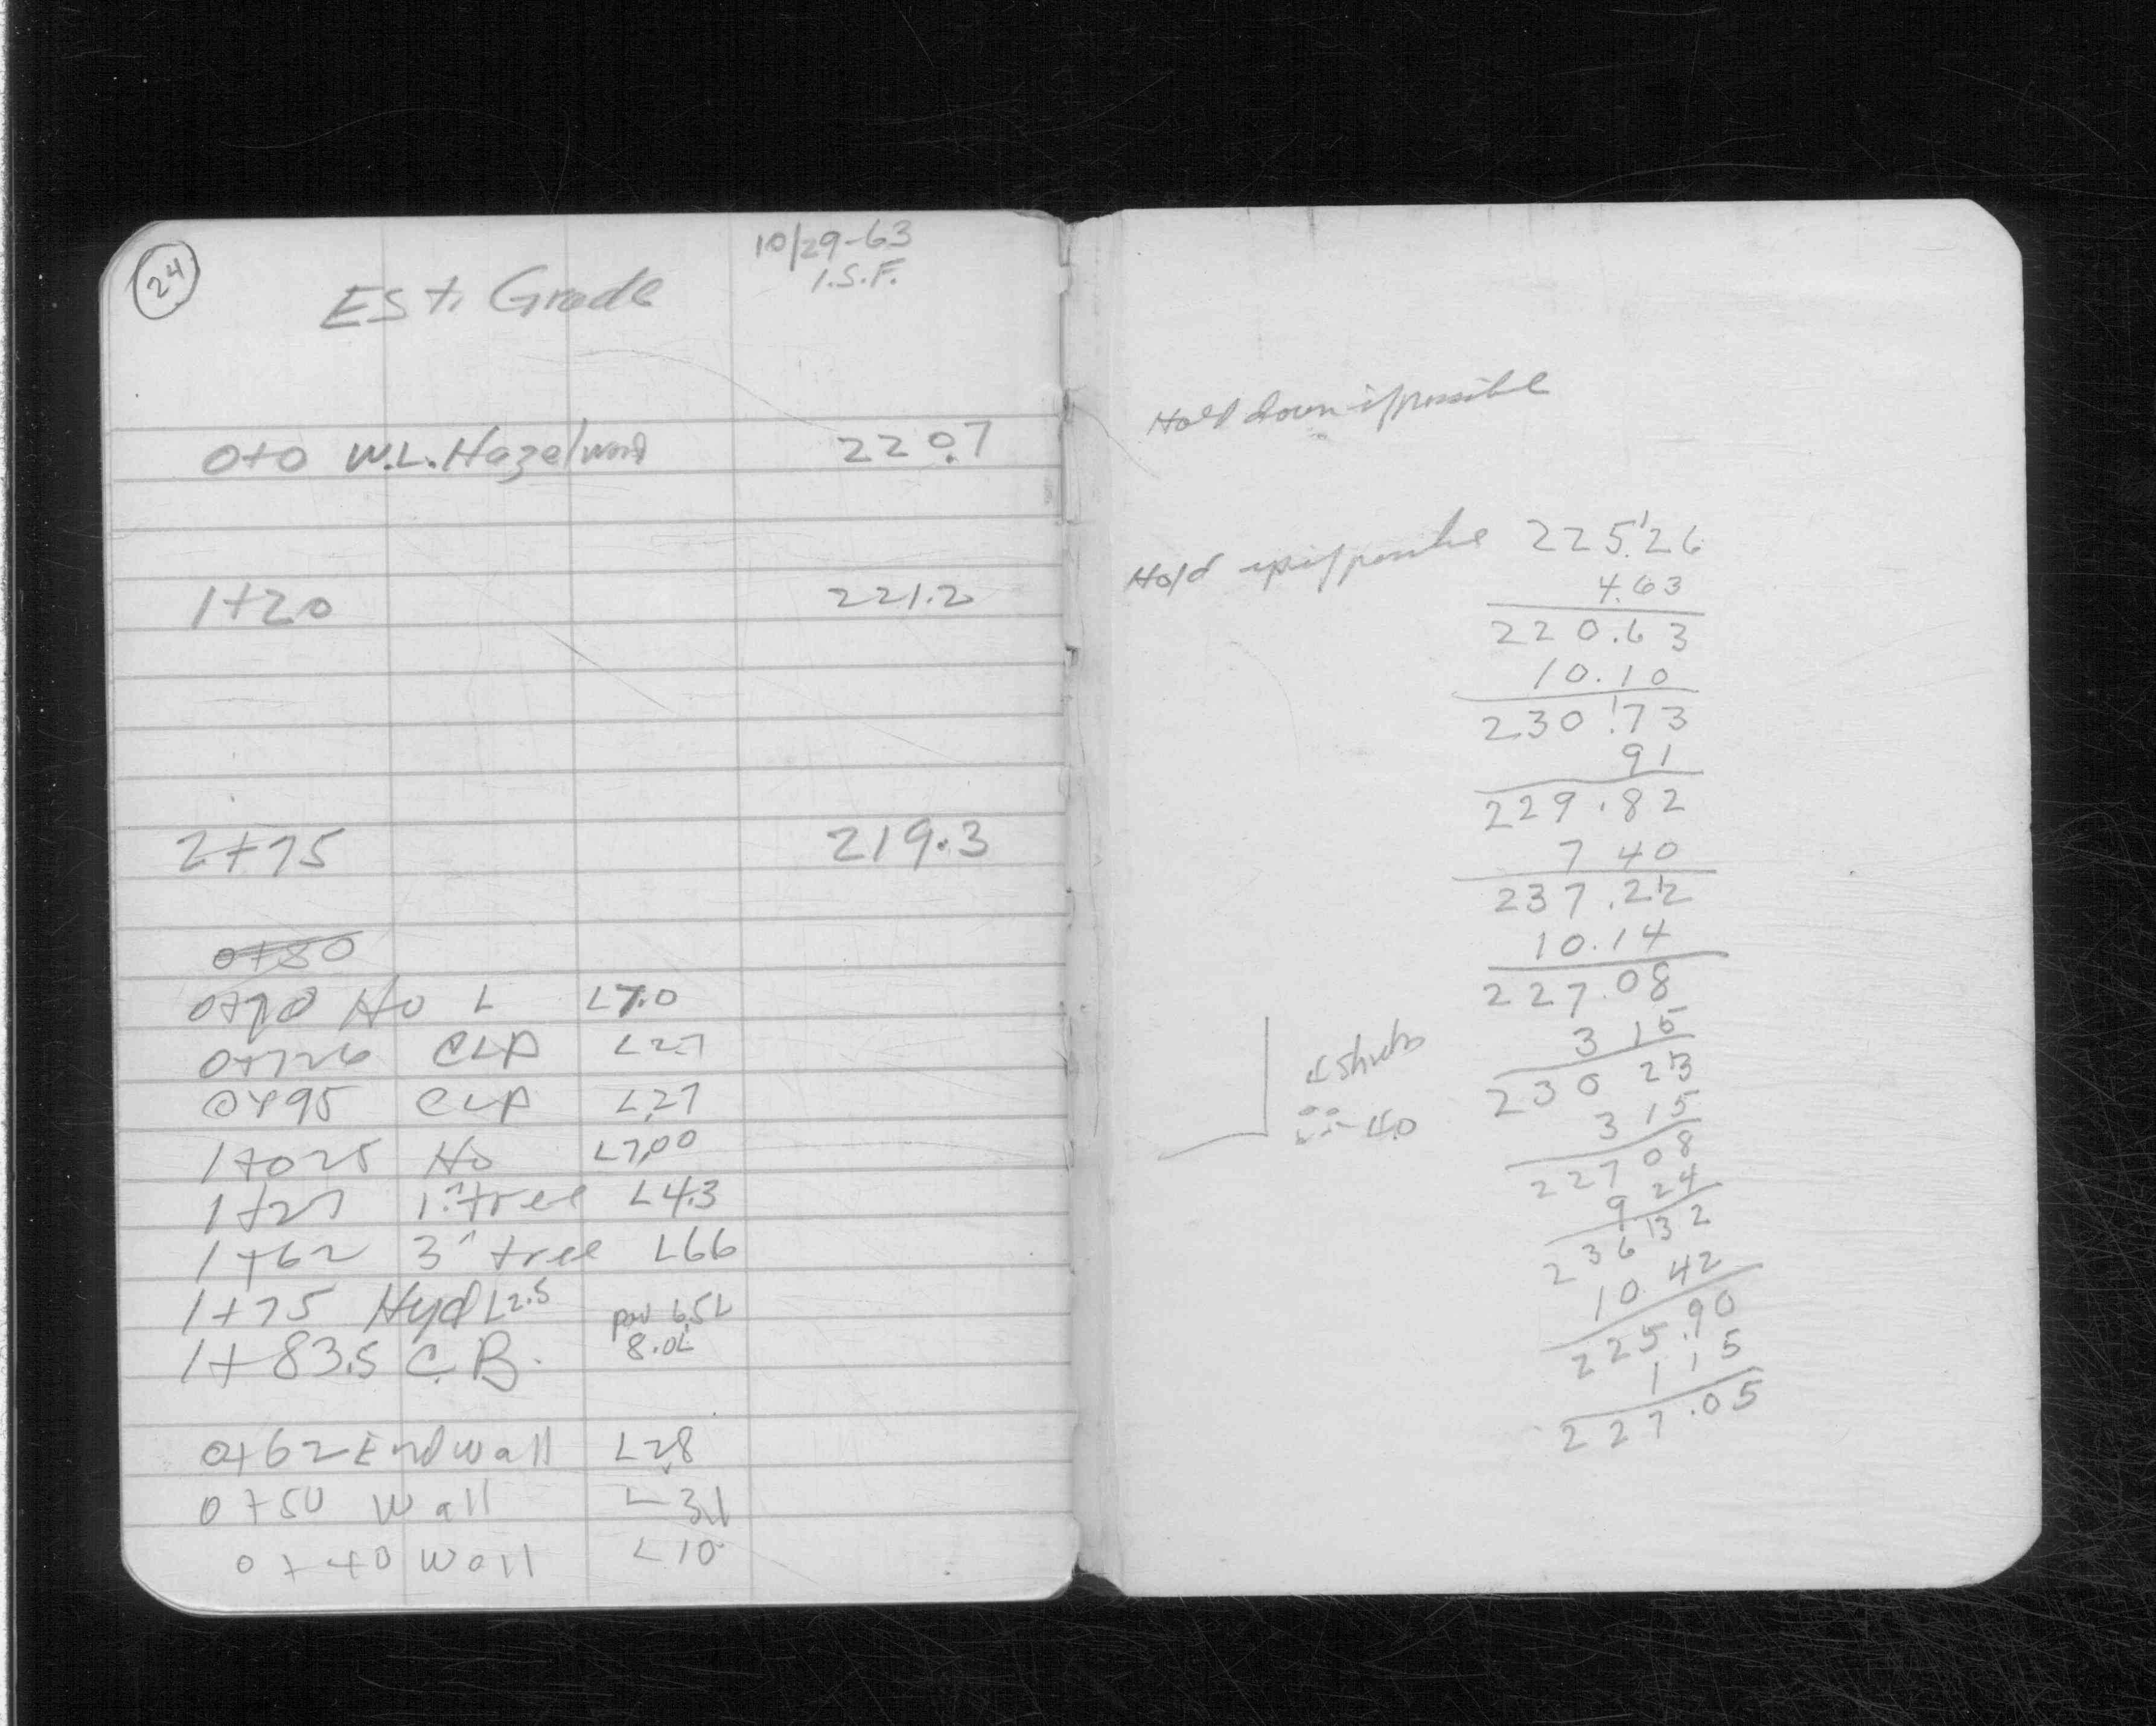 24
10/29-63
I.S.F.
Est. Grade
0+0 W.L. Hazelwood 220.7
1+20 221.2
2+75 219.3
0+80
0+70 Ho L L7.0
0+726 CLP L2.7
0+95 CLP L2.7
1+025 Ho L7.00
1+27 1" tree L4.3
1+62 3" tree L66
1+75 Hyd L2.5 pav 6.5L
1+83.5 C.B. 8.0L
0+62 End wall L2.8
0+50 Wall L3.1
0+40 Wall L10
Hold down if possible
Hold up if possible 225.26
4.63
220.63
10.10
230.73
91
229.82
7 40
237.22
10.14
227.08
3 15
230 23
3 15
227 08
9 24
236 32
10.42
225.90
1 15
227.05
shrubs
4.0